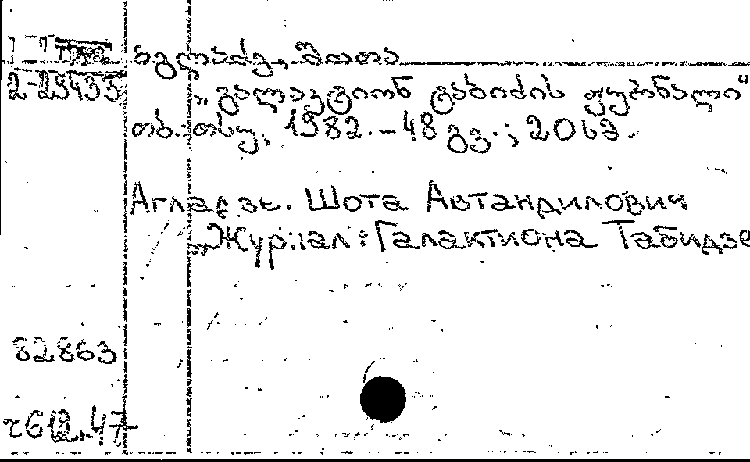 აგლაძე, შოთა
2-23433
„გალაკტიონ ტაბიძის ჟურნალი“
თბ. თსუ, 1982. – 48 გვ.; 20 სმ.
Агладзе. Шота Автандилович
„Журнал Галактиона Табидзе
82863